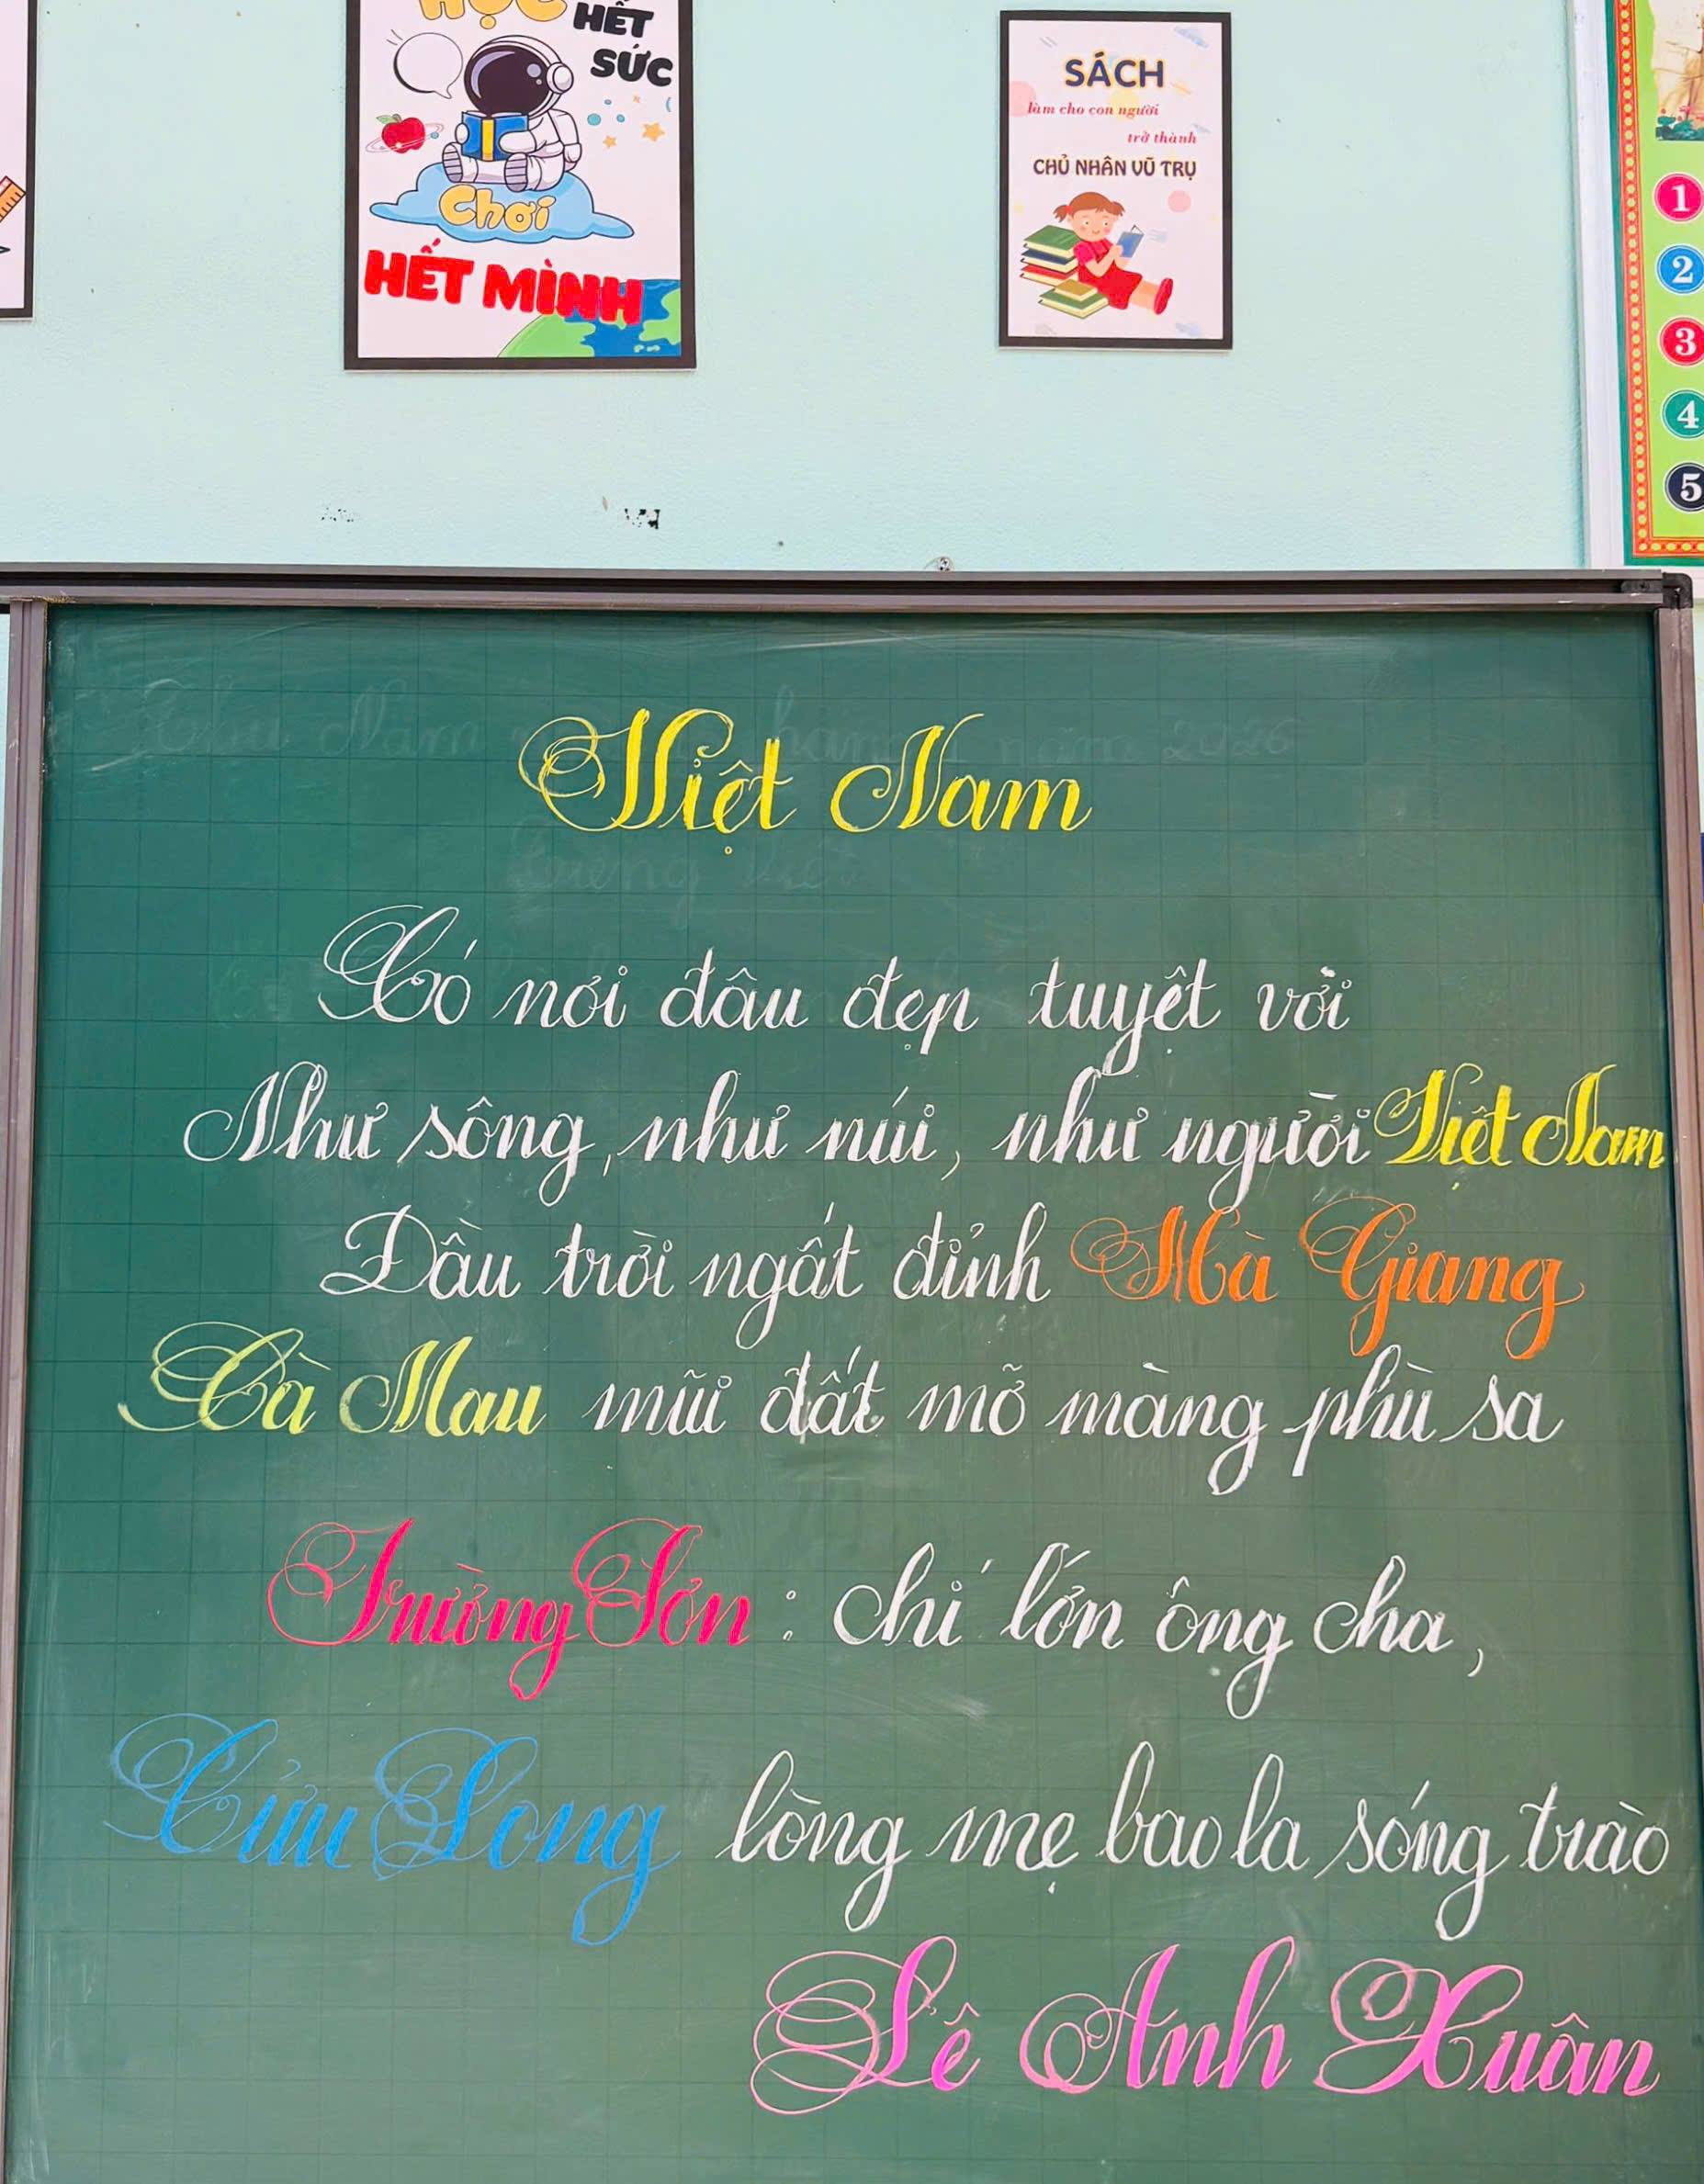 HỌC HẾT
SỨC
Chơi
HẾT MÌNH
SÁCH
làm cho con người
trở thành
CHỦ NHÂN VŨ TRỤ
1
2
3
4
5
Việt Nam
Có nơi đâu đẹp tuyệt vời
Như sông, như núi, như người Việt Nam
Đầu trời ngất đỉnh Hà Giang
Cà Mau mũi đất mỡ màng phù sa
Trường Sơn: chí lớn ông cha,
Cửu Long lòng mẹ bao la sóng trào
Lê Anh Xuân